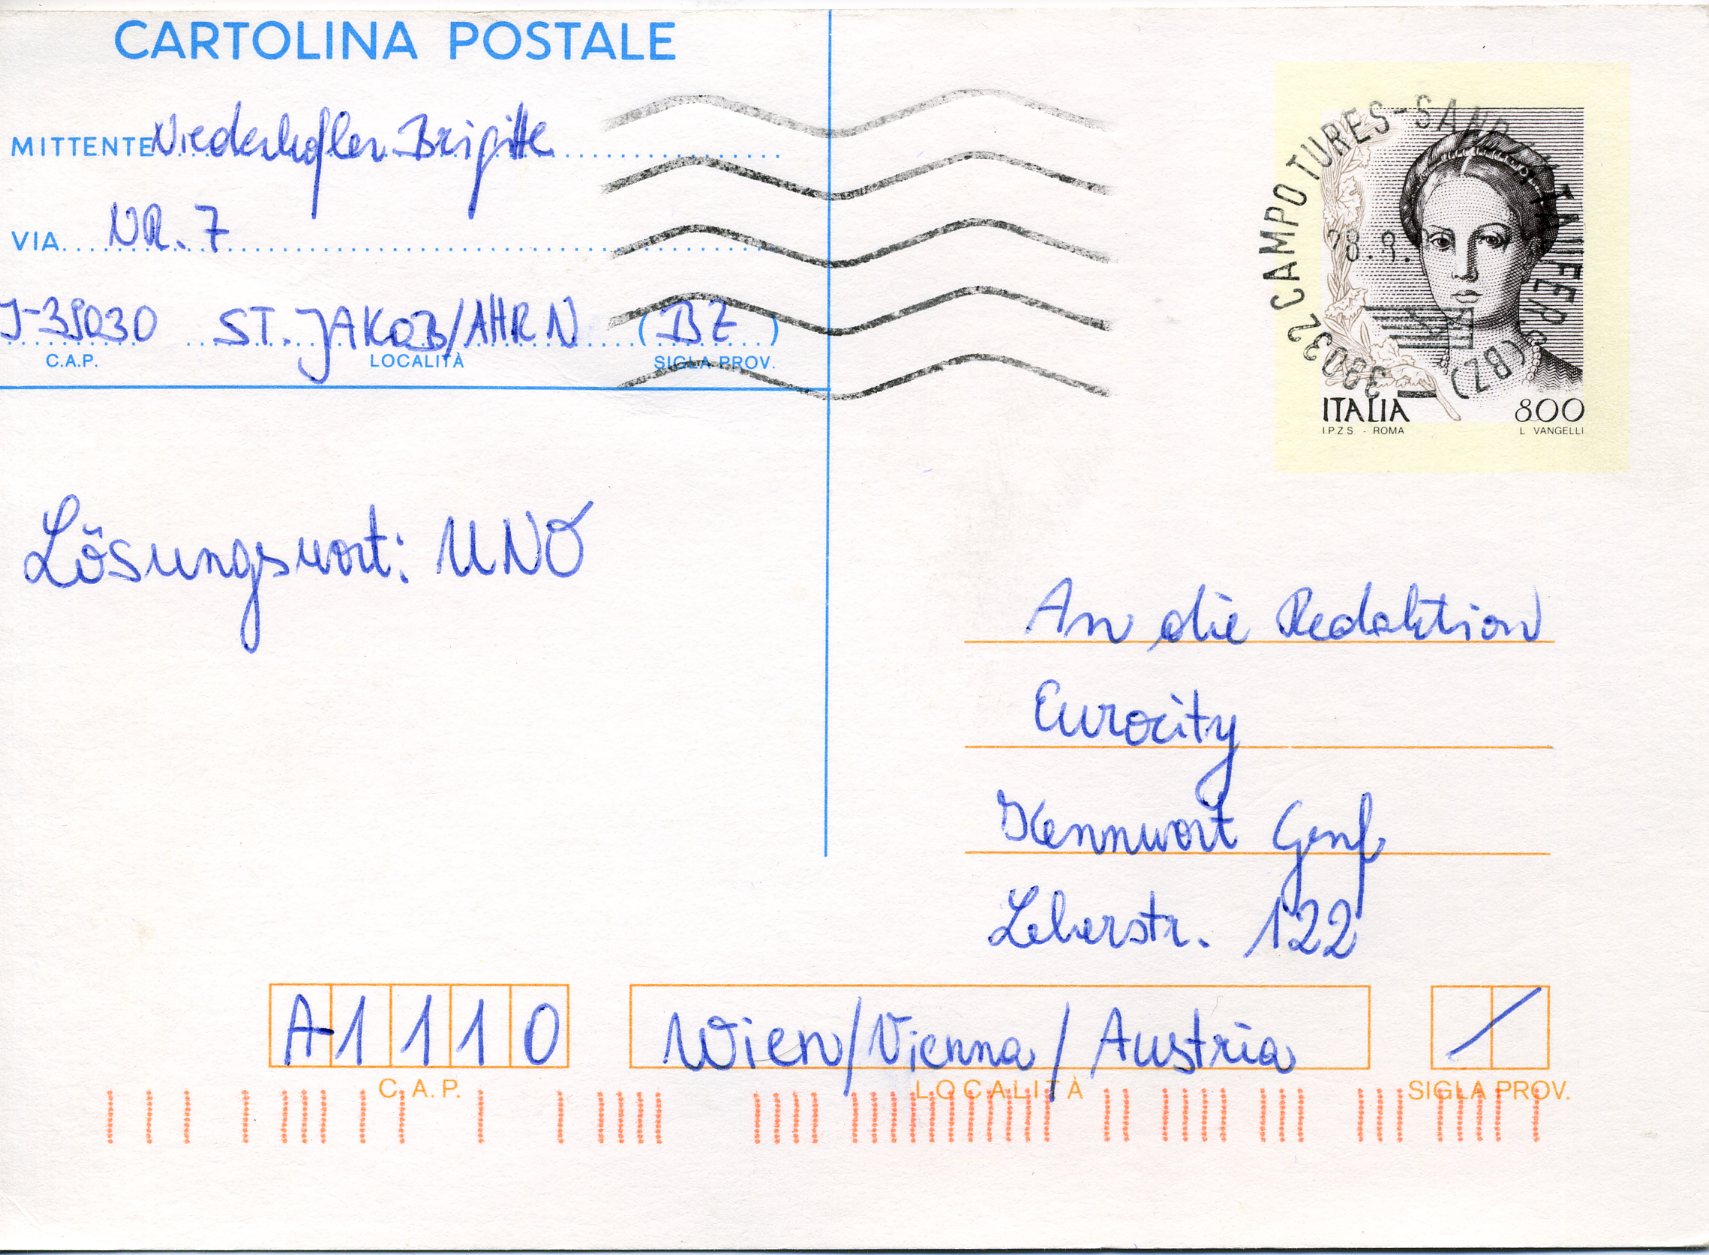 CARTOLINA POSTALE
MITTENTE Niederkofler Brigitte
VIA NR. 7
I-39030 ST. JAKOB/AHRN (BZ)
C.A.P. LOCALITÀ SIGLA PROV.
39032 CAMPO TURES-SAND TAUFERS (BZ)
ITALIA 800
I.P.Z.S. - ROMA L. VANGELLI
Lösungswort: UNO
An die Redaktion
Eurocity
Kennwort Genf
Leberstr. 122
A-1110 Wien/Vienna/Austria /
C.A.P. LOCALITÀ SIGLA PROV.